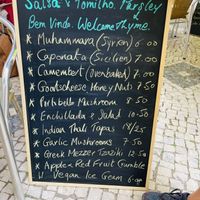 Salsa & Tomilho, Parsley
Bem Vindo. Welcome Thyme.
* Muhammara (Syrian) 6.00
* Caponata (Sicilian) 7.00
* Camembert (Ovenbaked) 7.00
* Goatscheese Honey Nut 7.50
* Portobello Mushroom 8.50
* Enchilada & Salad 10.50
* Indian Thali Tapas 14/25
* Garlic Mushrooms 7.50
* Greek Mezze Tzaziki 12.50
* Apple & Red Fruit Crumble
W Vegan Ice Cream 6.00